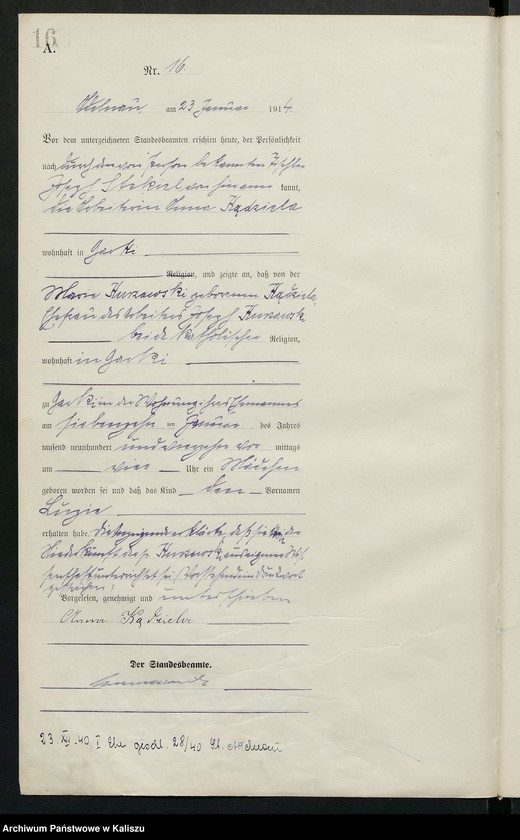 16
A.
Nr. 16.
Adelnau, am 23. Januar 1914.
Vor dem unterzeichneten Standesbeamten erschien heute, der Persönlichkeit
nach durch den von Person bekannten Tischler
Joseph kannt,
die Arbeiterin Anna Kądziela
wohnhaft in Garki
Religion, und zeigte an, daß von der
Marie Kurzawski geborenen Kądziela,
Ehefrau des Arbeiters Joseph Kurzawski
beide katholischer Religion,
wohnhaft in Garki
zu Garki in der Wohnung ihres Ehemannes
am siebenzehn ten Januar des Jahres
tausend neunhundert und vierzehn vor mittags
um vier Uhr ein Mädchen
geboren worden sei und daß das Kind den Vornamen
Luzie
erhalten habe. Die Anzeigende erklärte, daß sie von der
Niederkunft der p. Kurzawski aus eigener Wis-
senschaft unterrichtet sei. Vorstehend ein Druckwort
gestrichen.
Vorgelesen, genehmigt und unterschrieben
Anna Kądziela
Der Standesbeamte.
23. XII. 40 I Ehe geschl. 28/40 St. Adelnau
Archiwum Państwowe w Kaliszu